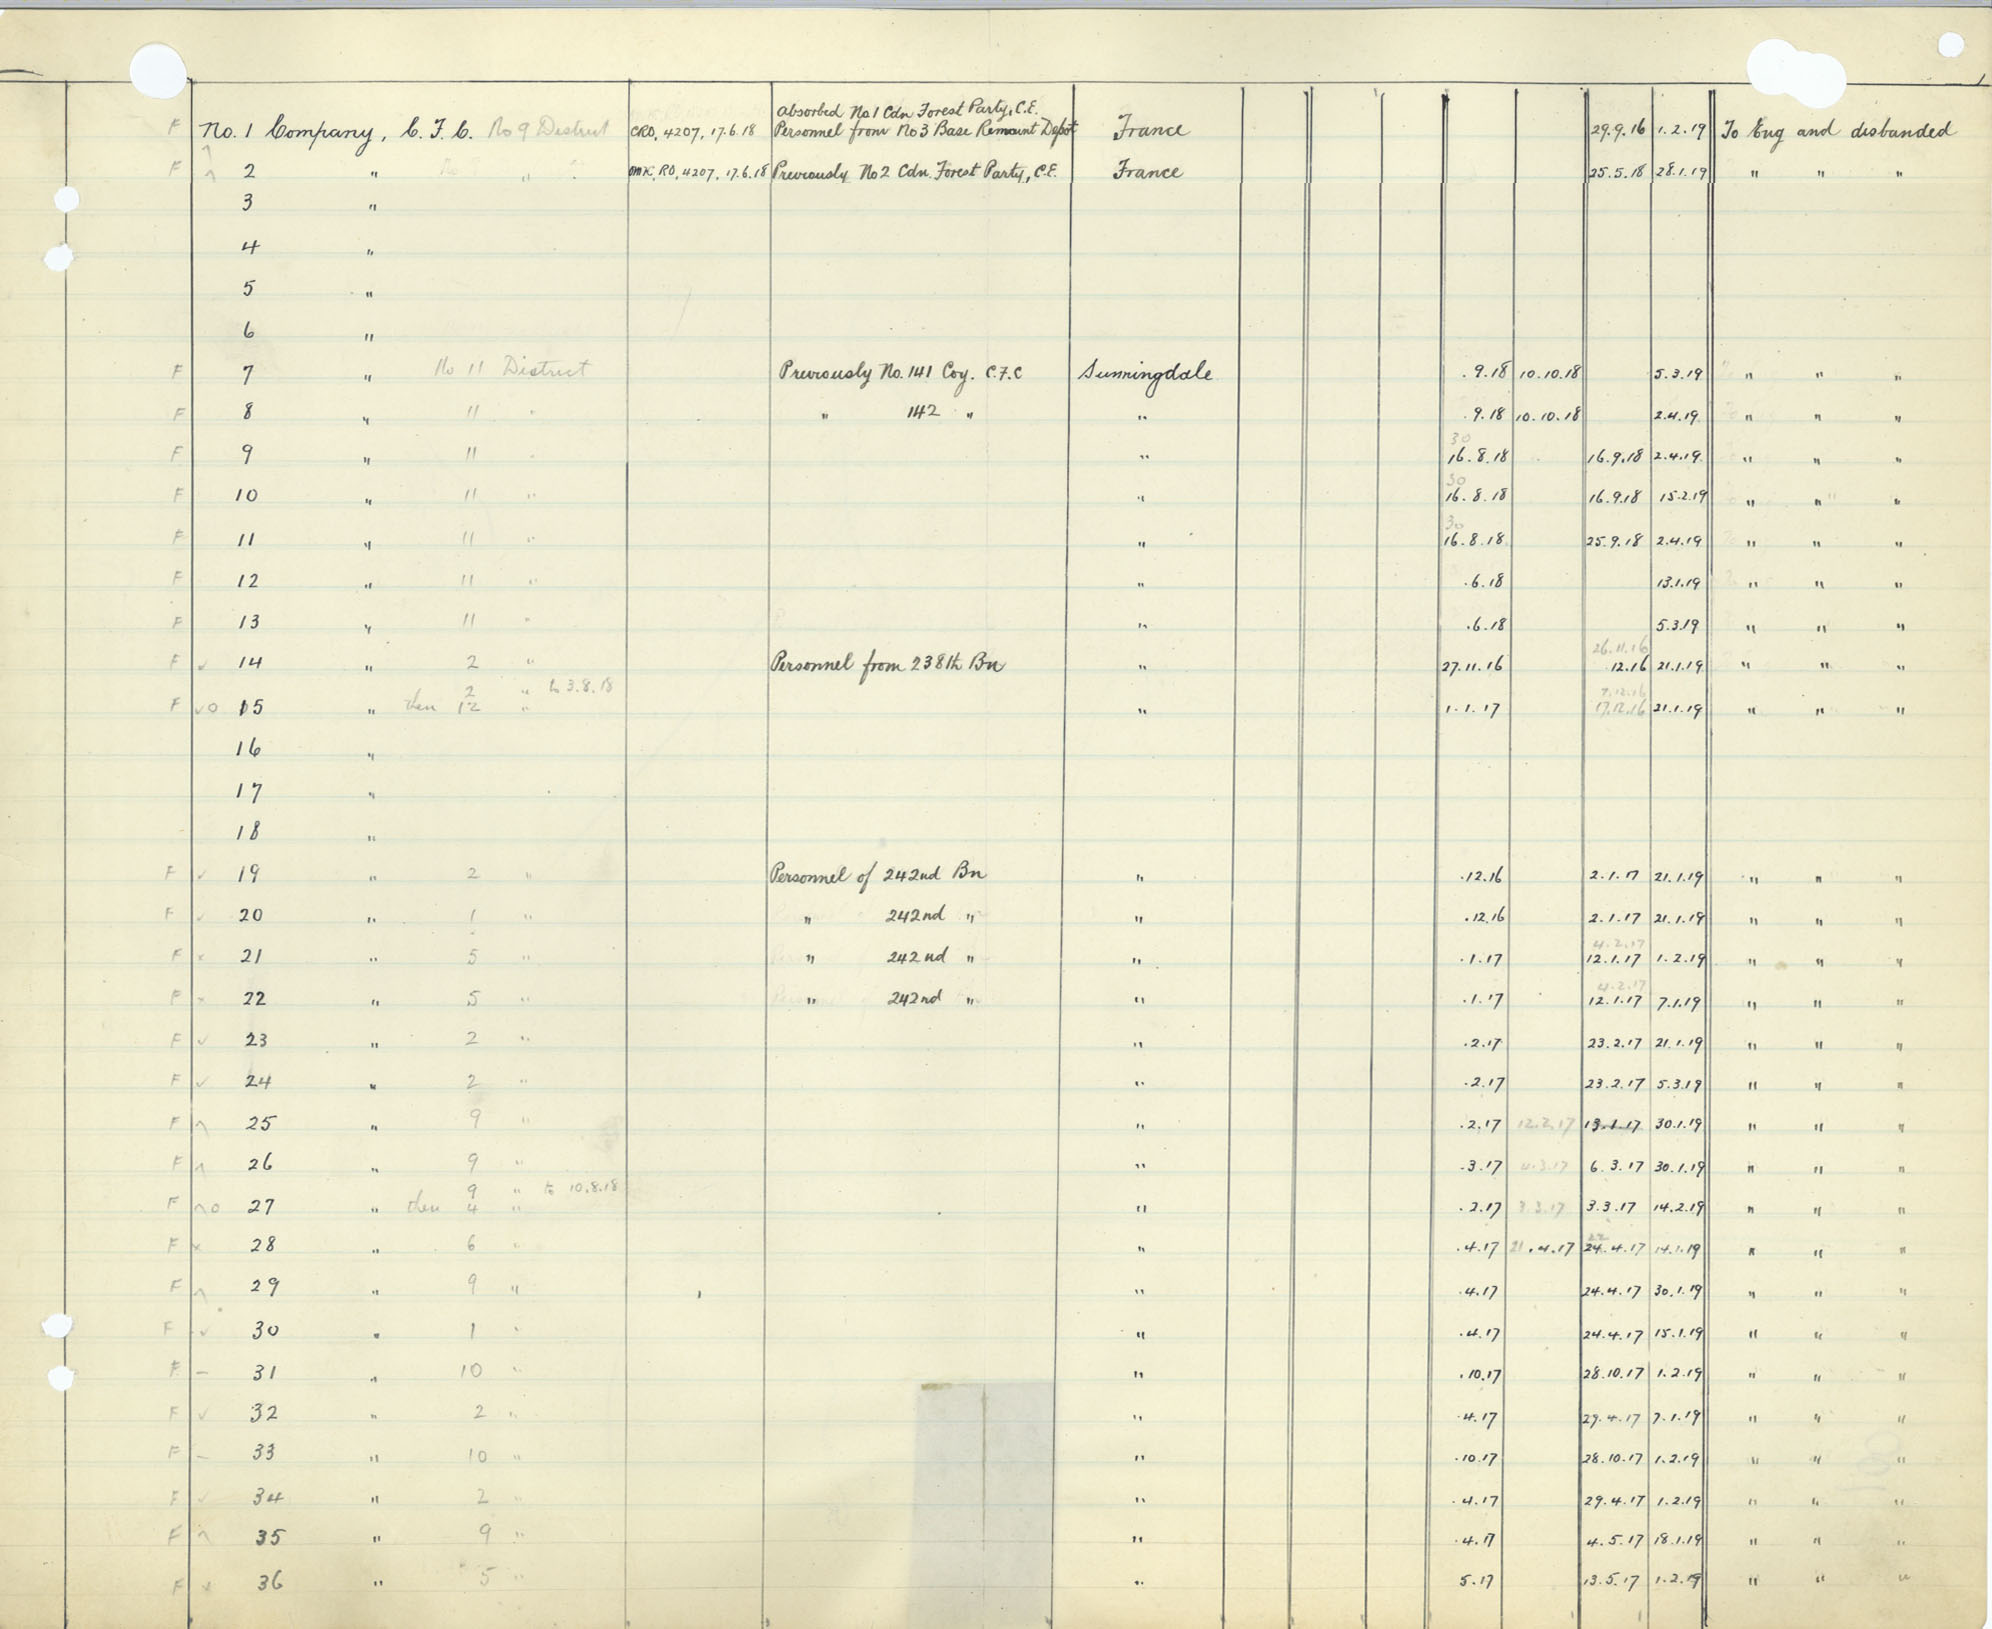 Absorbed No 1 Cdn Forest Party, C.E.
F No. 1 Company, C. F. C. No 9 District CRO, 4207, 17.6.18 Personnel from No 3 Base Remount Depot France 29.9.16 1.2.19 To Eng and disbanded
F 2 " " RO, 4207, 17.6.18 Previously No 2 Cdn. Forest Party, C.E. France 25.5.18 28.1.19 " " "
3 "
4 "
5 "
6 "
F 7 " No 11 District Previously No. 141 Coy. C.F.C Sunningdale .9.18 10.10.18 5.3.19 " " "
F 8 " 11 " " 142 " " .9.18 10.10.18 2.4.19 " " "
30
F 9 " 11 " " 16.8.18 16.9.18 2.4.19 " " "
30
F 10 " 11 " " 16.8.18 16.9.18 15.2.19 " " "
30
F 11 " 11 " " 16.8.18 25.9.18 2.4.19 " " "
F 12 " 11 " " .6.18 13.1.19 " " "
F 13 " 11 " " .6.18 5.3.19 " " "
26.11.16
F ✓ 14 " 2 " Personnel from 238th Bn " 27.11.16 12.16 21.1.19 " " "
2 " to 3.8.18 7.12.16
F ✓o 15 " then 12 " " 1.1.17 17.12.16 21.1.19 " " "
16 "
17 "
18 "
F ✓ 19 " 2 " Personnel of 242nd Bn " .12.16 2.1.17 21.1.19 " " "
F ✓ 20 " 1 " " 242nd " " .12.16 2.1.17 21.1.19 " " "
4.2.17
F x 21 " 5 " " 242nd " " .1.17 12.1.17 1.2.19 " " "
4.2.17
F x 22 " 5 " " 242nd " " .1.17 12.1.17 7.1.19 " " "
F ✓ 23 " 2 " " .2.17 23.2.17 21.1.19 " " "
F ✓ 24 " 2 " " .2.17 23.2.17 5.3.19 " " "
F ^ 25 " 9 " " .2.17 12.2.17 13.1.17 30.1.19 " " "
F ^ 26 " 9 " " .3.17 4.3.17 6.3.17 30.1.19 " " "
9 " to 10.8.18
F ^o 27 " then 4 " " .2.17 3.3.17 3.3.17 14.2.19 " " "
22
F x 28 " 6 " " .4.17 21.4.17 24.4.17 14.1.19 " " "
F ^ 29 " 9 " " .4.17 24.4.17 30.1.19 " " "
F ✓ 30 " 1 " " .4.17 24.4.17 15.1.19 " " "
F – 31 " 10 " " .10.17 28.10.17 1.2.19 " " "
F ✓ 32 " 2 " " .4.17 29.4.17 7.1.19 " " "
F – 33 " 10 " " .10.17 28.10.17 1.2.19 " " "
F ✓ 34 " 2 " " .4.17 29.4.17 1.2.19 " " "
F ^ 35 " 9 " " .4.17 4.5.17 18.1.19 " " "
F x 36 " 5 " " 5.17 13.5.17 1.2.19 " " "